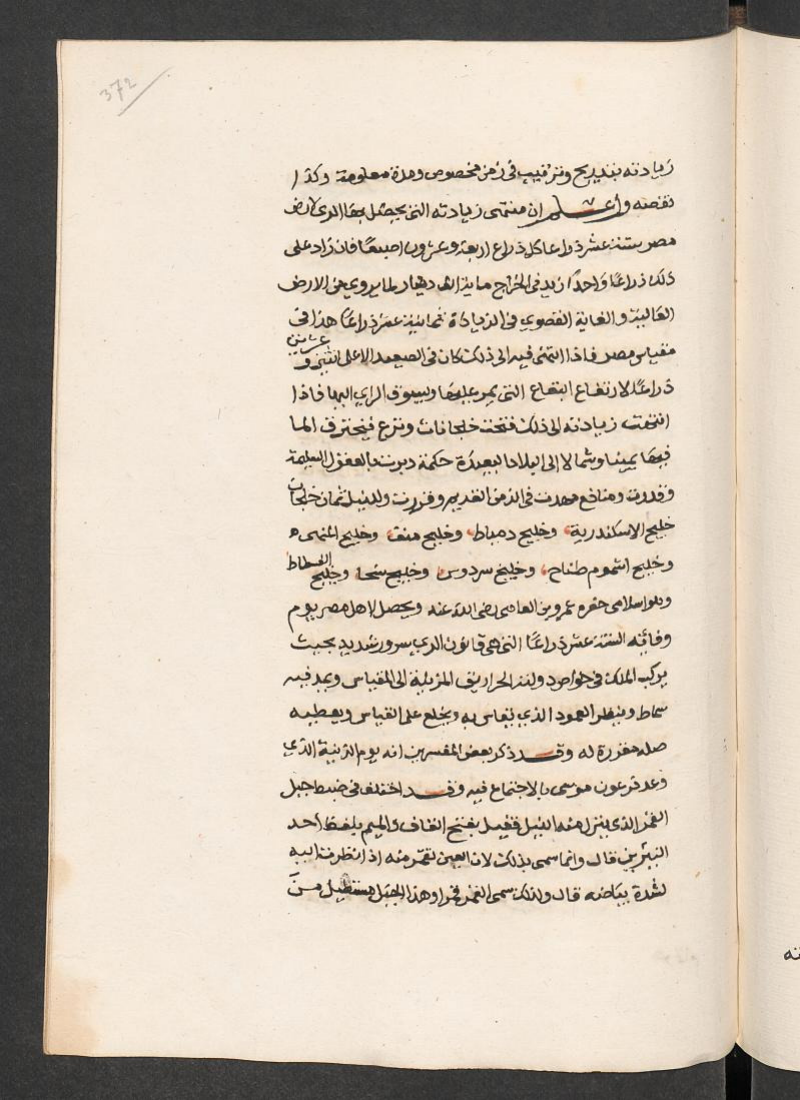 372
زيادته بتدريج وترتيب فى زمن مخصوص ومدة معلومة وكذا
نقصه واعلم ان منتهى زيادته التى يحصل بها الرى لارض
مصر ستة عشر ذراعا كل ذراع اربعة وعشرون اصبعا فان زاد على
ذلك ذراعا واحدا زيد فى الخراج ماية الف دينار لما يروى من الارض
العالية والغاية القصوى فى الزيادة ثمانية عشر ذراعا هذا فى
مقياس مصر فاذا انتهى فيه الى ذلك كان فى الصعيد الاعلى اثنين و عشرين
ذراعا لارتفاع البقاع التى يمر عليها ويسوق الرى اليها فاذا
انتهت زيادته الى ذلك فتحت خلجانات وترع فيخترق الما
فيها يمينا وشمالا الى البلاد البعيدة حكمة دبرت بالعقول السليمة
وقدرت ومنافع مهدت فى الزمن القديم وقررت وللنيل ثمان خلجان
خليج الاسكندرية، وخليج دمياط، وخليج منف، وخليج المنهى ه
وخليج اشموم طناح، وخليج سردوس، وخليج سخا، وخليج الفسطاط
وهو اسلامى حفره عمرو بن العاصى رضى الله عنه ويحصل لاهل مصر يوم
وفائه الستة عشر ذراعا التى هى قانون الرى سرور شديد بحيث
يركب الملك فى خواص دولته الحراريق المزينة الى المقياس ويمد فيه
سماط وينظر العمود الذى يقاس به ويخلع على القياس ويعطيه
صله مقررة له وقد ذكر بعض المفسرين انه يوم الزينة الذى
وعد فرعون موسى بالاجتماع فيه وقد اختلف فى ضبط جبل
القمر الذى ينزل منه النيل فقيل بفتح القاف والميم بلفظ احد
النيرين قال وانما سمى بذلك لان العين تقمر منه اذا نظرت اليه
لشدة بياضه قال ولذلك سمى القمر قمرا وهذا الجبل مستطيل من